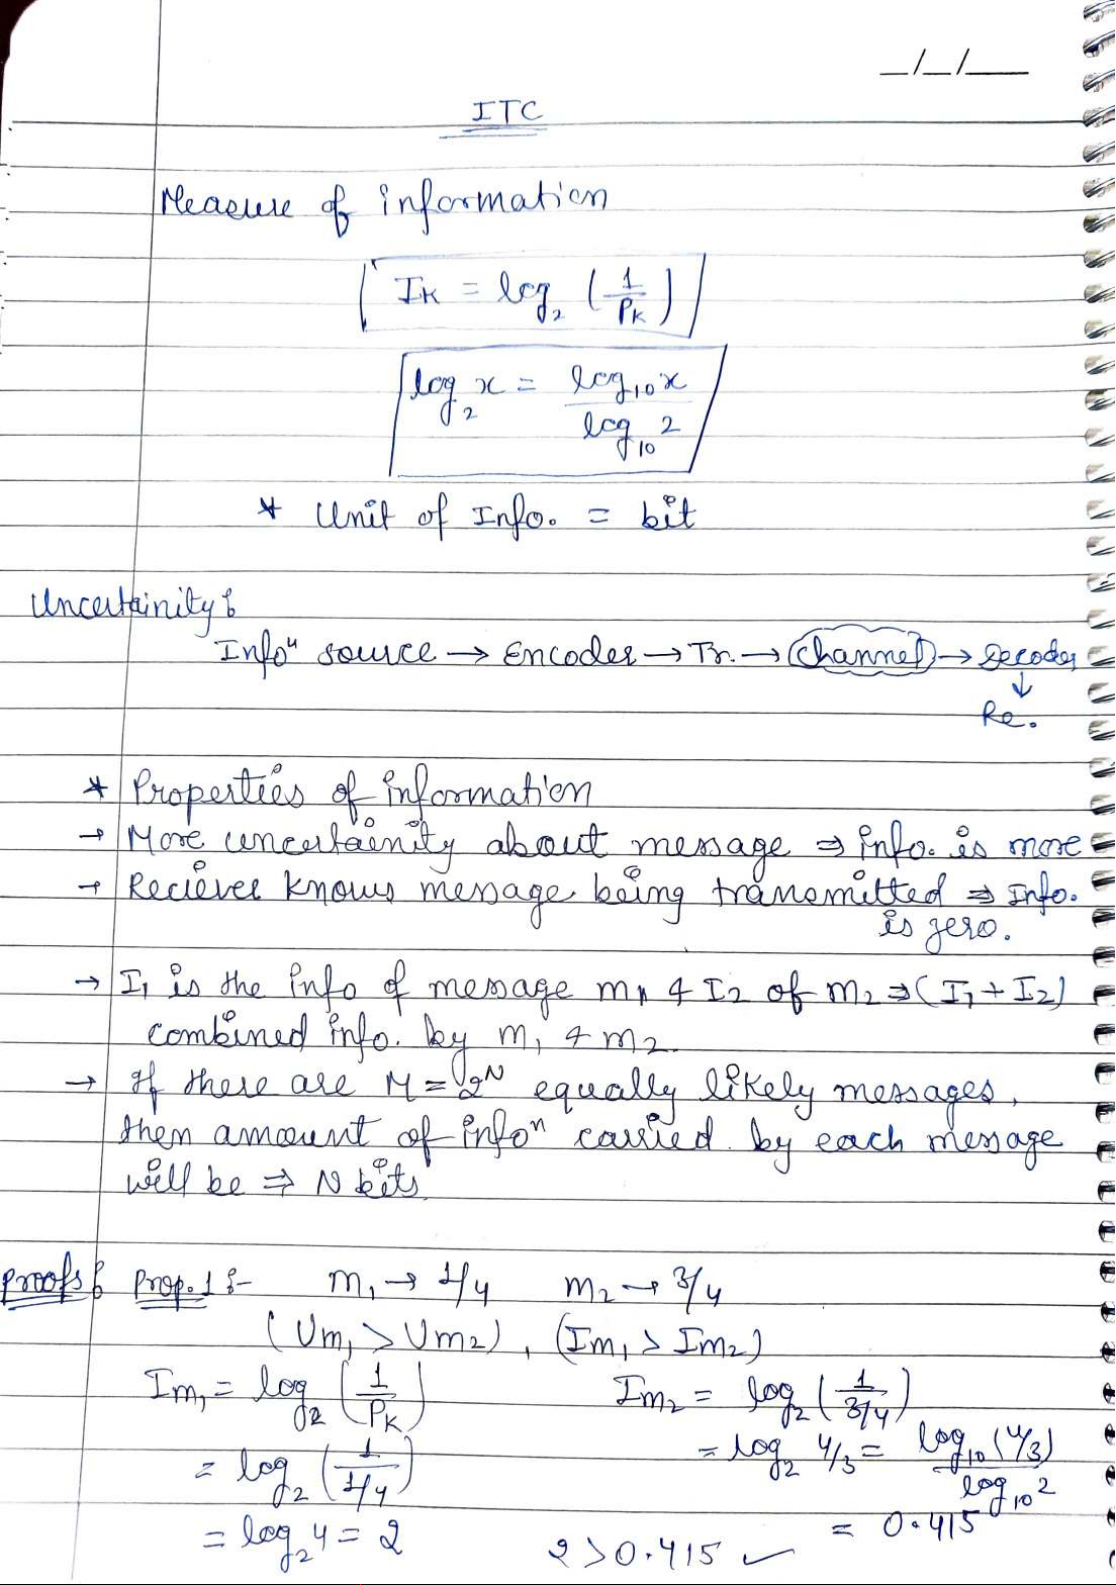 _/_/__
ITC
Measure of information
I_K = log_2 (1/P_K)
log_2 x = log_10 x / log_10 2
* Unit of Info. = bit
Uncertainity :
Infoⁿ source → Encoder → Tr. → Channel → Decoder
↓
Re.
* Properties of information
→ More uncertainity about message ⇒ info. is more
→ Reciever knows message being transmitted ⇒ Info.
is zero.
→ I_1 is the info of message m_1 & I_2 of m_2 ⇒ (I_1 + I_2)
combined info. by m_1 & m_2.
→ If there are M = 2^N equally likely messages,
then amount of infoⁿ carried by each message
will be ⇒ N bits
Proofs : Prop. 1 :- m_1 → 1/4 m_2 → 3/4
(Um_1 > Um_2), (Im_1 > Im_2)
Im_1 = log_2 (1/P_K) Im_2 = log_2 (1/(3/4))
= log_2 (1/(1/4)) = log_2 4/3 = log_10 (4/3) / log_10 2
= log_2 4 = 2 = 0.415
2 > 0.415 ✓